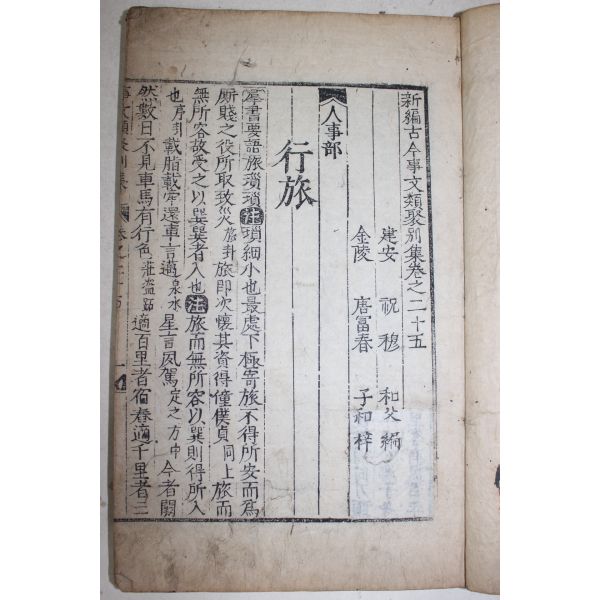 新編古今事文類聚別集卷之二十五
建安 祝穆 和父 編
金陵 唐富春 子和 梓
人事部
行旅
羣書要語旅瑣瑣注瑣細小也最處下極寄旅不得所安而為
厮賤之役所取致災旅卦旅即次懷其資得僮僕貞同上旅而
無所容故受之以巽巽者入也注旅而無所容以巽則得所入
也序卦載脂載舝還車言邁泉水星言夙駕定之方中今者闕
然數日不見車馬有行色莊盜跖適百里者宿舂適千里者三